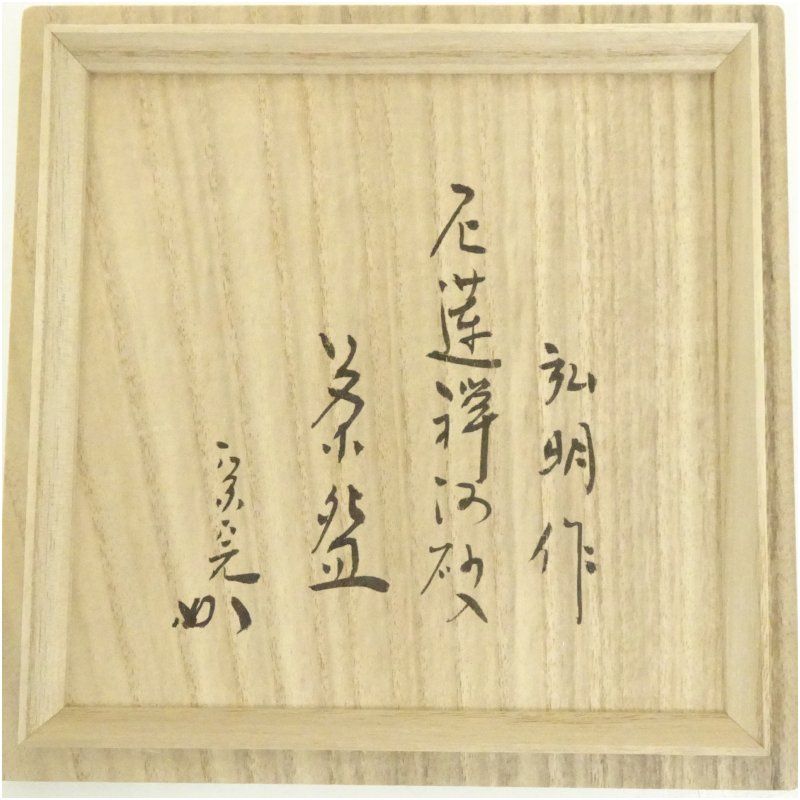 弘明作
尼蓮禅河砂入
茶盌
宗晃